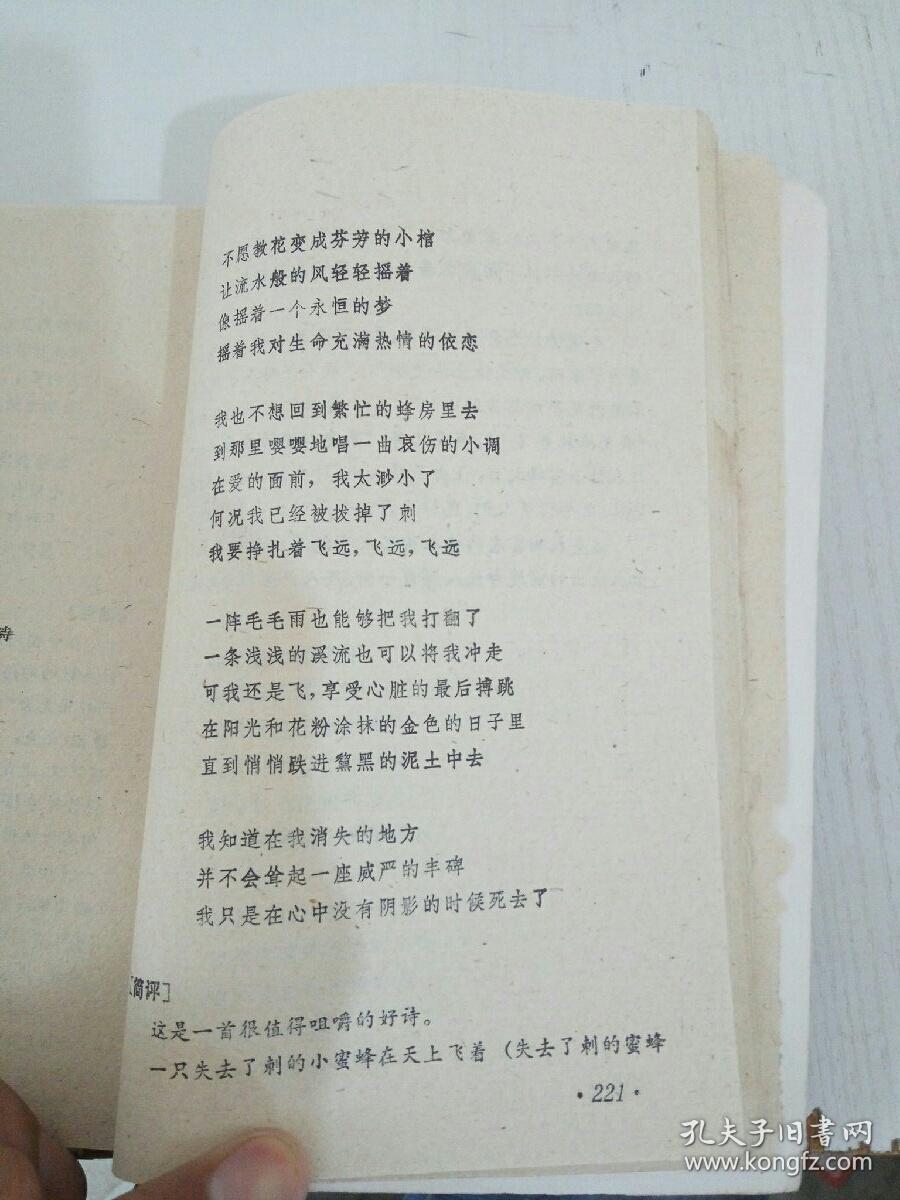 不愿教花变成芬芳的小棺
让流水般的风轻轻摇着
像摇着一个永恒的梦
摇着我对生命充满热情的依恋
我也不想回到繁忙的蜂房里去
到那里嘤嘤地唱一曲哀伤的小调
在爱的面前，我太渺小了
何况我已经被拔掉了刺
我要挣扎着飞远，飞远，飞远
一阵毛毛雨也能够把我打翻了
一条浅浅的溪流也可以将我冲走
可我还是飞，享受心脏的最后搏跳
在阳光和花粉涂抹的金色的日子里
直到悄悄跌进黧黑的泥土中去
我知道在我消失的地方
并不会耸起一座威严的丰碑
我只是在心中没有阴影的时候死去了
[简评]
这是一首很值得咀嚼的好诗。
一只失去了刺的小蜜蜂在天上飞着（失去了刺的蜜蜂
·221·
孔夫子旧书网
www.kongfz.com